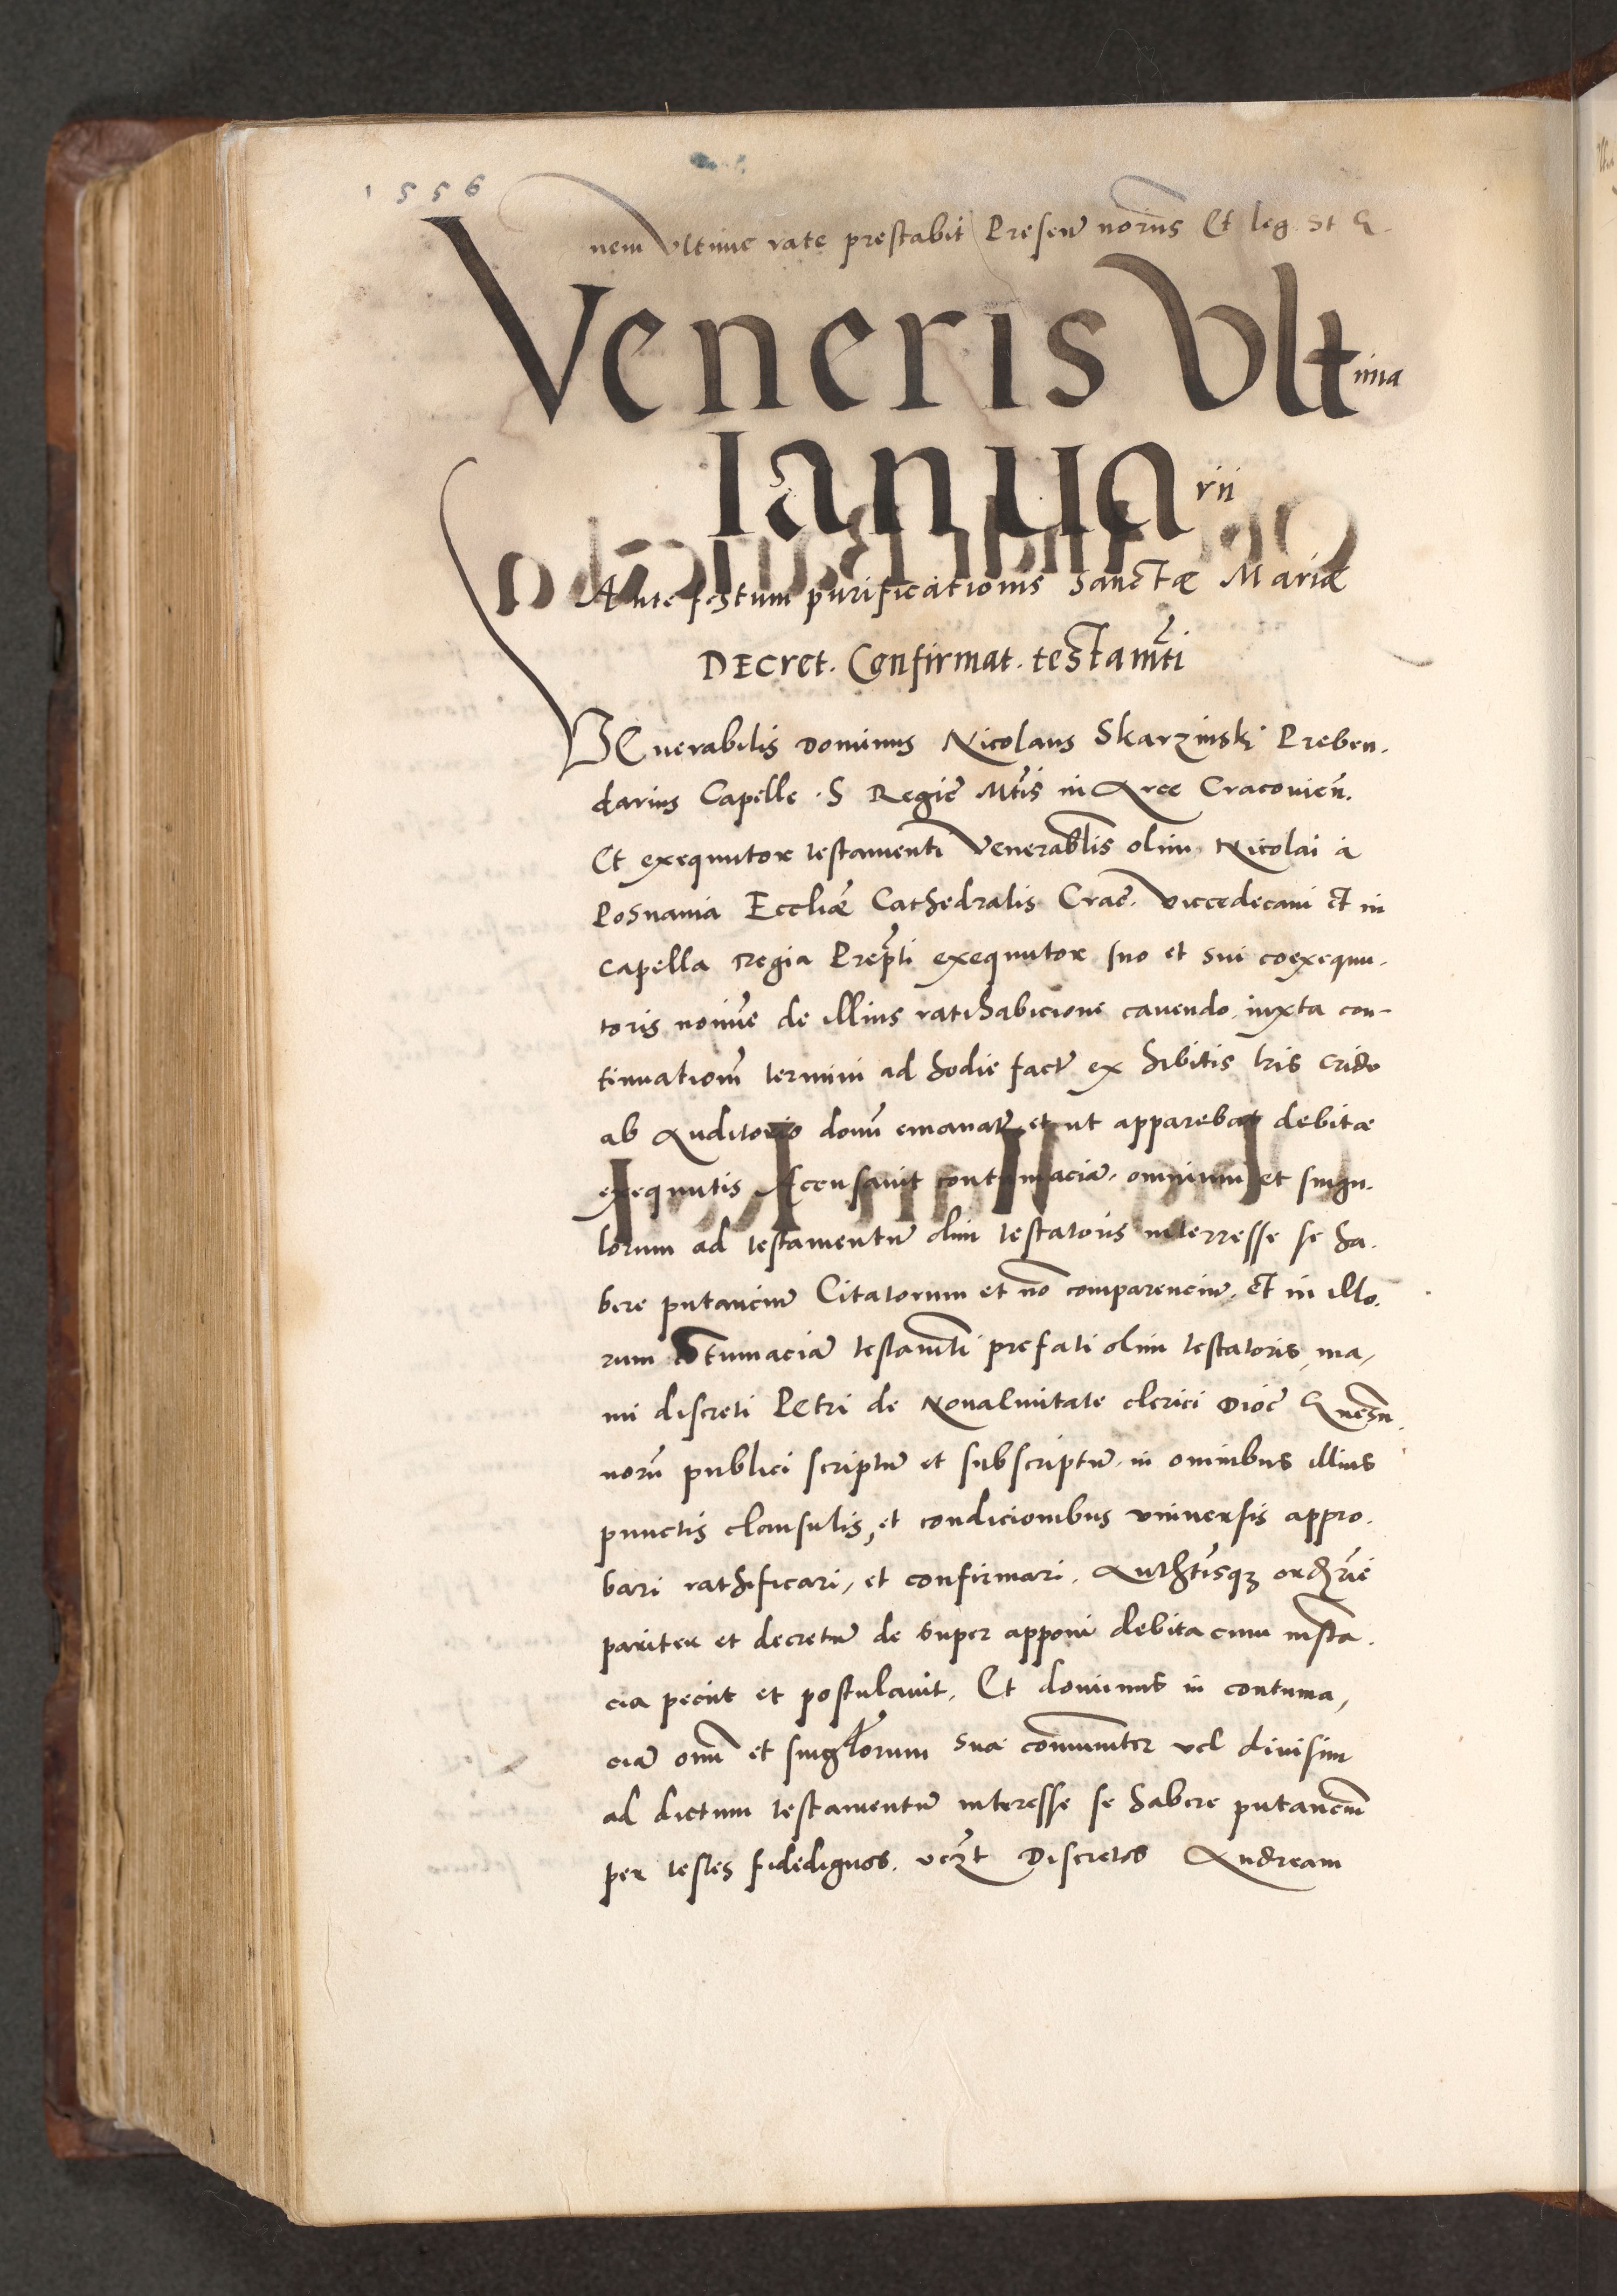 1556
nem Vltime rate prestabit Presen̄ norūs Et leg. St
Veneris Vltima
Ianuarii
Ante festum purificationis Sanctæ Mariæ
Decret. Confirmat. testam̄ti
VEnerabilis Dominus Nicolaus Skarzinski Preben-
darius Capelle S Regie Mtis in Arce Cracovien̄.
Et exequutor testamenti Venerablis olim Nicolai a
Posnania Eccliæ Cathedralis Crac. Vicedecani Et in
Capella Regia Prep̄ti exequutor suo et sui coexequu-
toris noīne de illius ratihabicione cavendo iuxta con-
tinuationē termini ad hodie factā ex hibitis lris crido
ab Auditorio domī emanatꝭ et ut apparebat debitæ
exequutis Accusavit contumaciā omnium et singu-
lorum ad testamentū olim testatoris interresse se ha-
bere putanciū Citatorum et nō comparenciū. Et in illo-
rum Cōtumaciā testam̄ti prefati olim testatoris ma-
nu discreti Petri de Novacivitate clerici Dioc̄ Gnezn̄.
norū publici scriptū et subscriptū in omnibus illius
punctis clausulis, et condicionibus universis appro-
bari rathificari, et confirmari. Authtisqꝫ ordrie
pariter et decretū de super apponi debita cum insta-
cia peciit et postulavit. Et dominus in contuma-
ciā om̄ et singlorum sua com̄uniter vel divisim
ad dictum testamentū interesse se habere putanciū
per testes fidedignos. vczt Discretos Andream